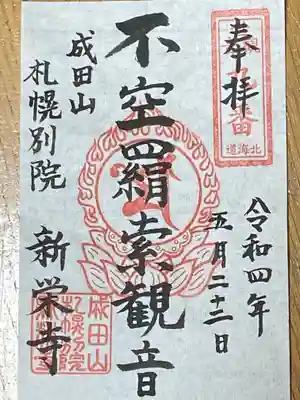 奉拝
北海道
令和四年
五月二十二日
不空羂索観音
成田山
札幌別院
新栄寺
成田山
札幌別院